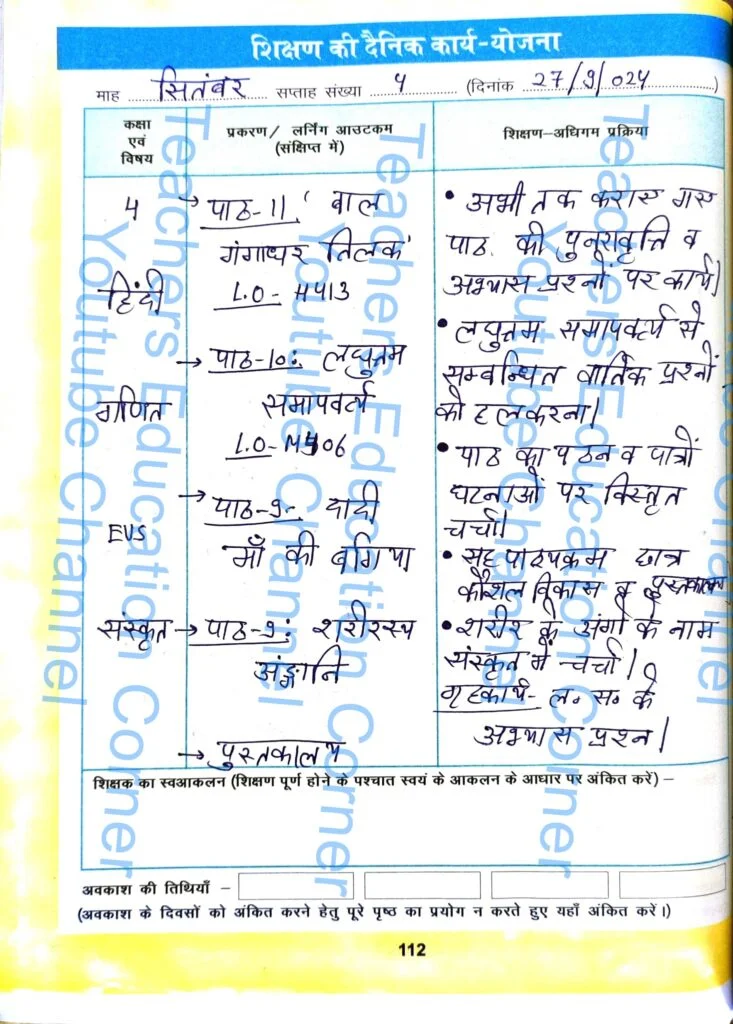 शिक्षण की दैनिक कार्य-योजना
माह सितंबर सप्ताह संख्या 4 (दिनांक 27/9/024)
कक्षा एवं विषय
प्रकरण / लर्निंग आउटकम (संक्षिप्त में)
शिक्षण-अधिगम प्रक्रिया
4
हिंदी
→ पाठ-11 'बाल
गंगाधर तिलक'
L.O- H413
• अभी तक कराए गए
पाठ की पुनरावृत्ति व
अभ्यास प्रश्नों पर कार्य।
गणित
→ पाठ-10: लघुत्तम
समापवर्त्य
L.O- M406
• लघुत्तम समापवर्त्य से
सम्बन्धित वार्तिक प्रश्नों
को हल करना।
EVS
→ पाठ-9- दादी
माँ की बगिया
• पाठ का पठन व पात्रों
घटनाओं पर विस्तृत
चर्चा।
• सह पाठ्यक्रम छात्र
कौशल विकास व पुस्तकालय
संस्कृत
→ पाठ-9: शरीरस्य
अंङ्गानि
• शरीर के अंगों के नाम
संस्कृत में चर्चा।
गृहकार्य- ल॰ स॰ के
अभ्यास प्रश्न।
→ पुस्तकालय
शिक्षक का स्वआकलन (शिक्षण पूर्ण होने के पश्चात स्वयं के आकलन के आधार पर अंकित करें) –
अवकाश की तिथियाँ –
(अवकाश के दिवसों को अंकित करने हेतु पूरे पृष्ठ का प्रयोग न करते हुए यहाँ अंकित करें।)
112
Teachers Education Corner
Youtube Channel
Teachers Education Corner
Youtube Channel
Teachers Education Corner
Youtube Channel